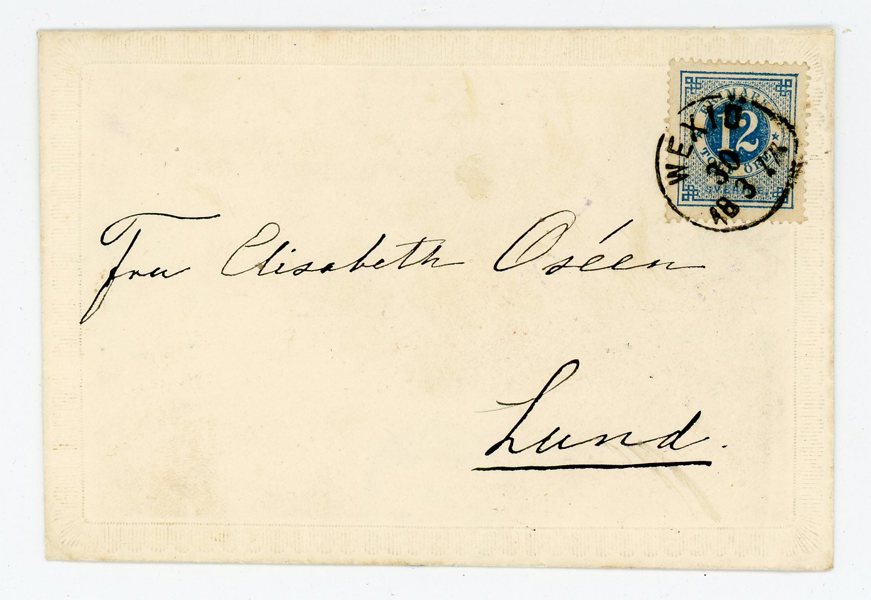 WEXIÖ
30
18 3 77
12
SVERIGE
Fru Elisabeth Oséen
Lund.